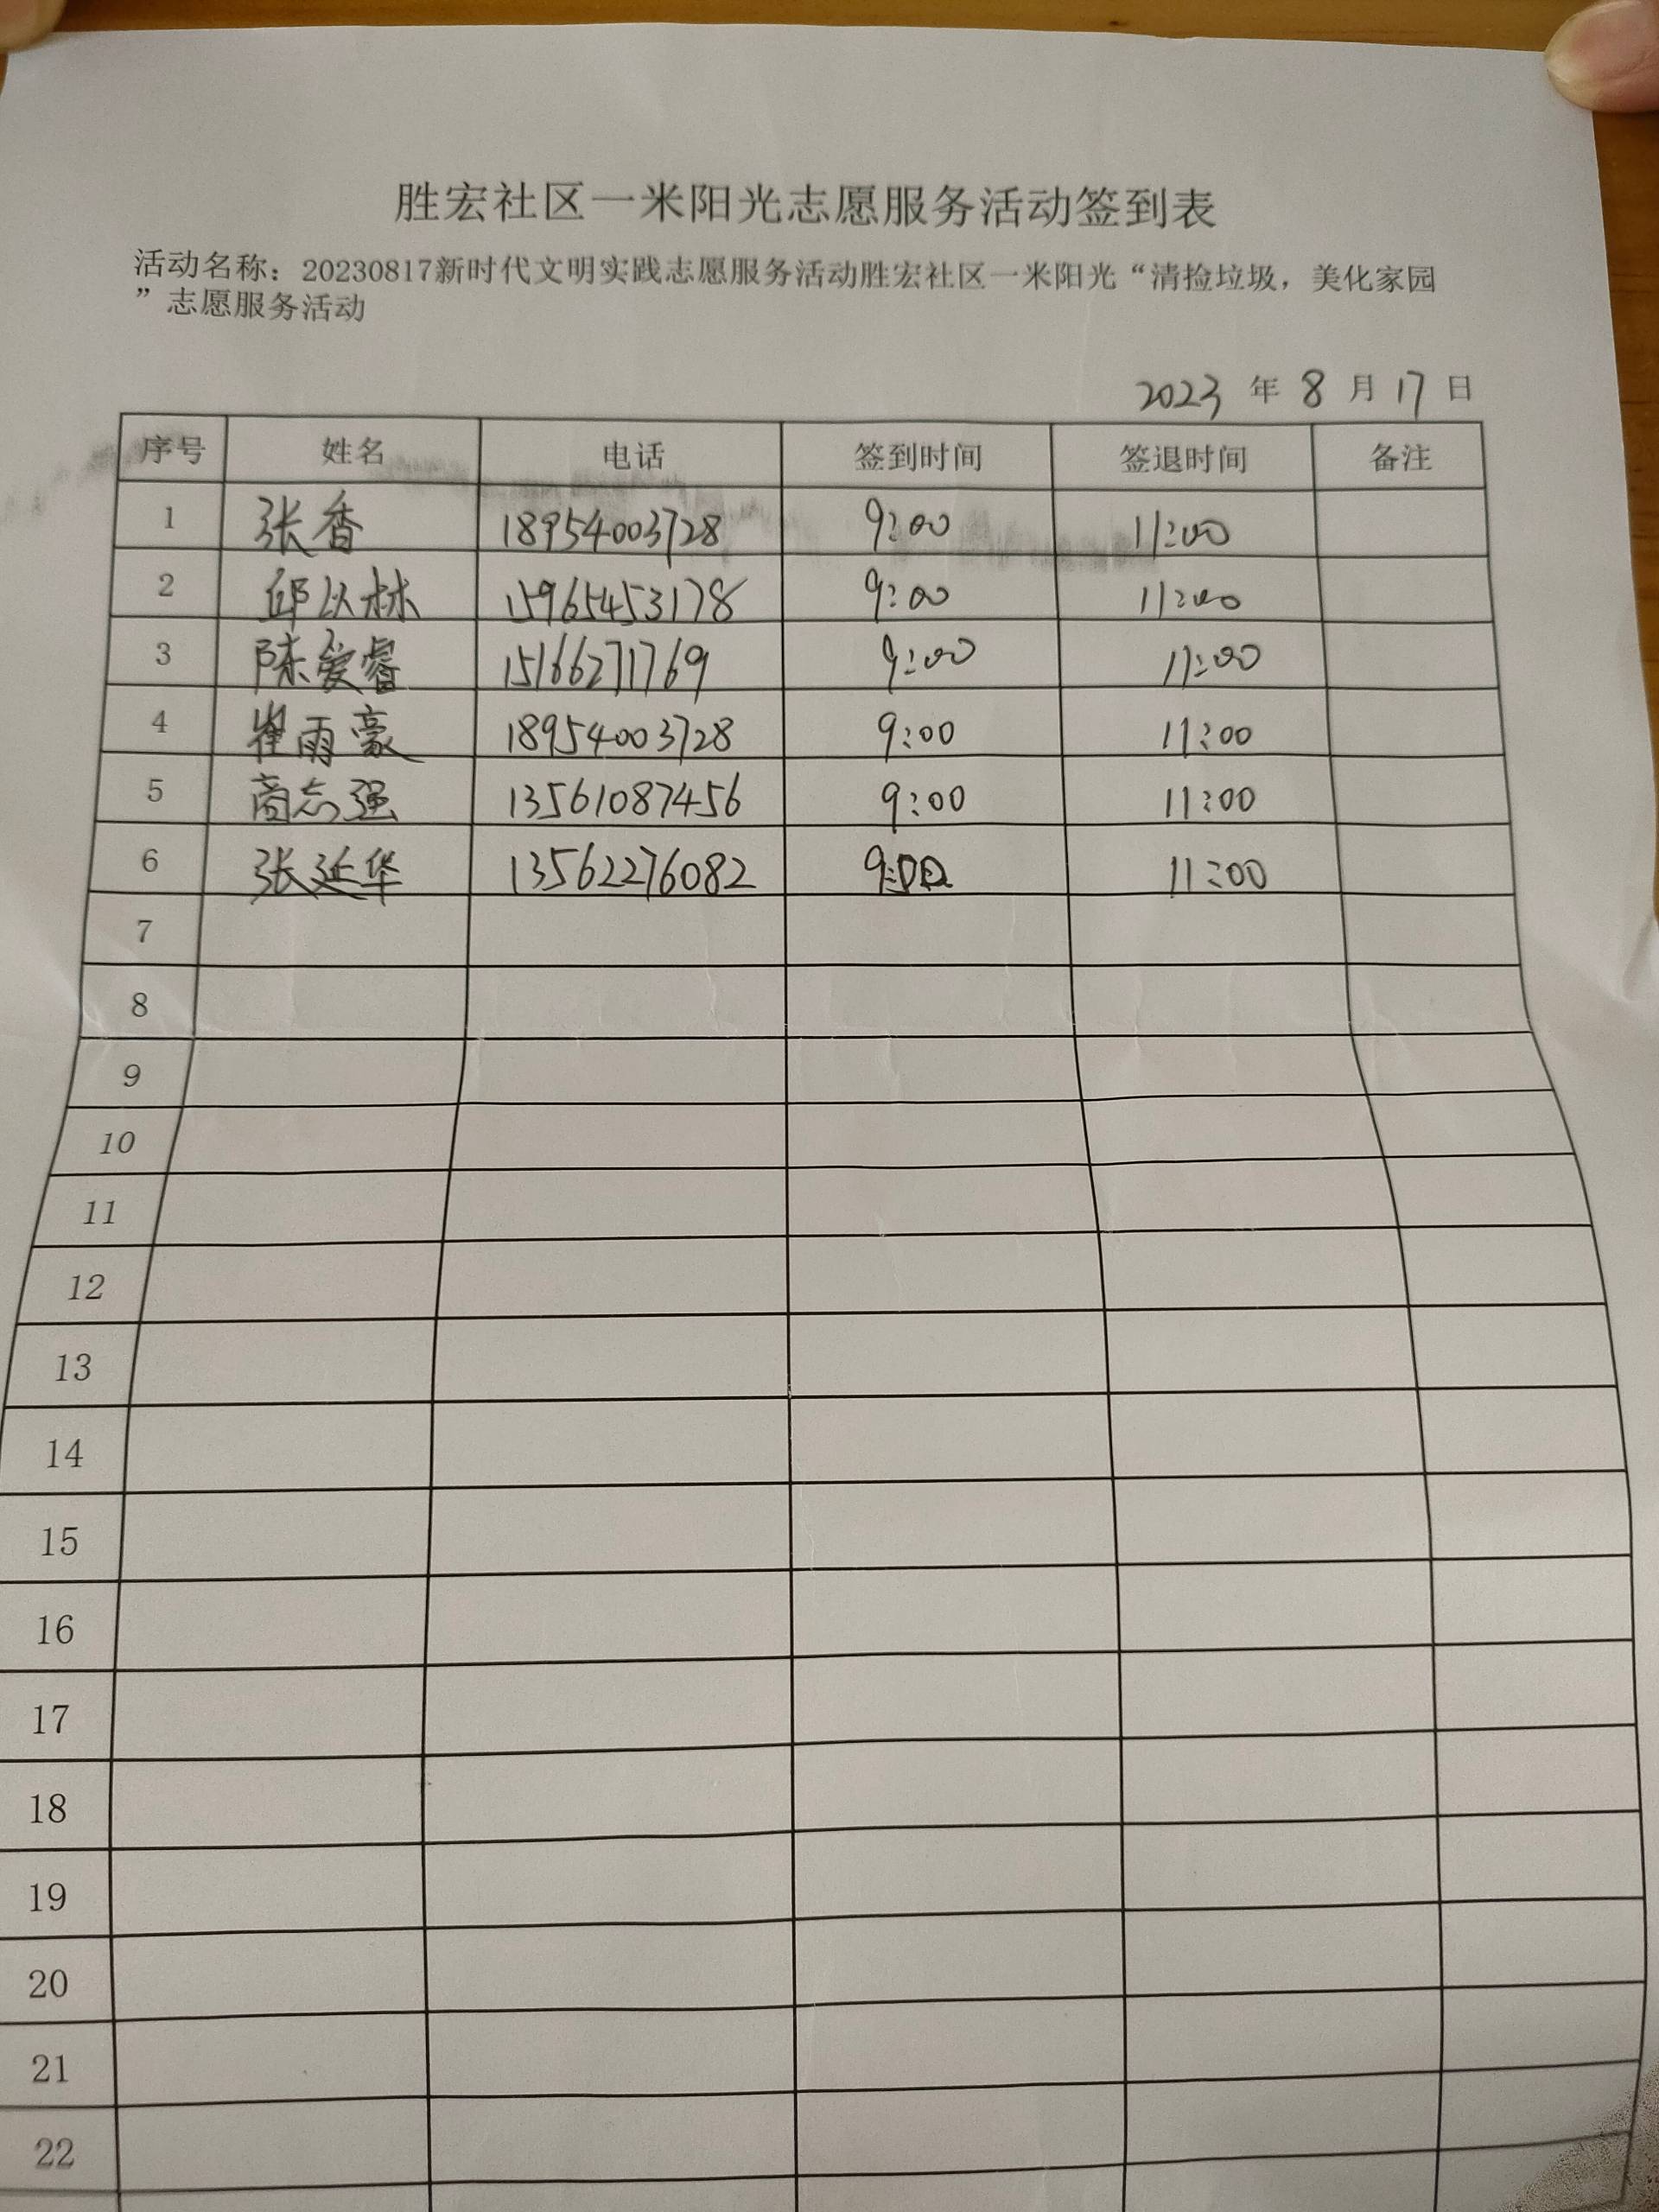 胜宏社区一米阳光志愿服务活动签到表
活动名称：20230817新时代文明实践志愿服务活动胜宏社区一米阳光“清捡垃圾，美化家园
”志愿服务活动
2023 年 8 月 17 日
序号 姓名 电话 签到时间 签退时间 备注
1 张香 18954003728 9:00 11:00
2 邱以林 15965453178 9:00 11:00
3 陈爱睿 15166271769 9:00 11:00
4 崔雨豪 18954003728 9:00 11:00
5 商志强 13561087456 9:00 11:00
6 张延华 13562276082 9:00 11:00
7
8
9
10
11
12
13
14
15
16
17
18
19
20
21
22